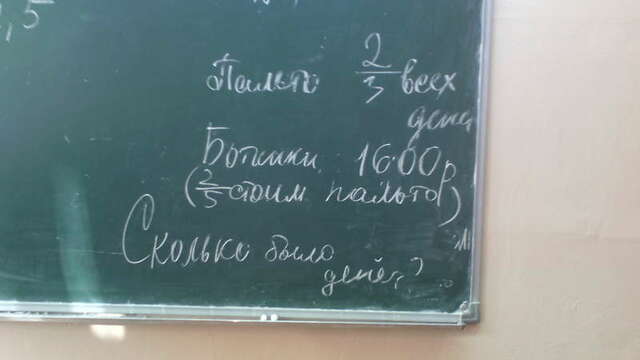 ,5
Пальто 2/3 всех
денег
Ботинки 1600р
(2/5 стоим пальто)
Сколько было
денег?